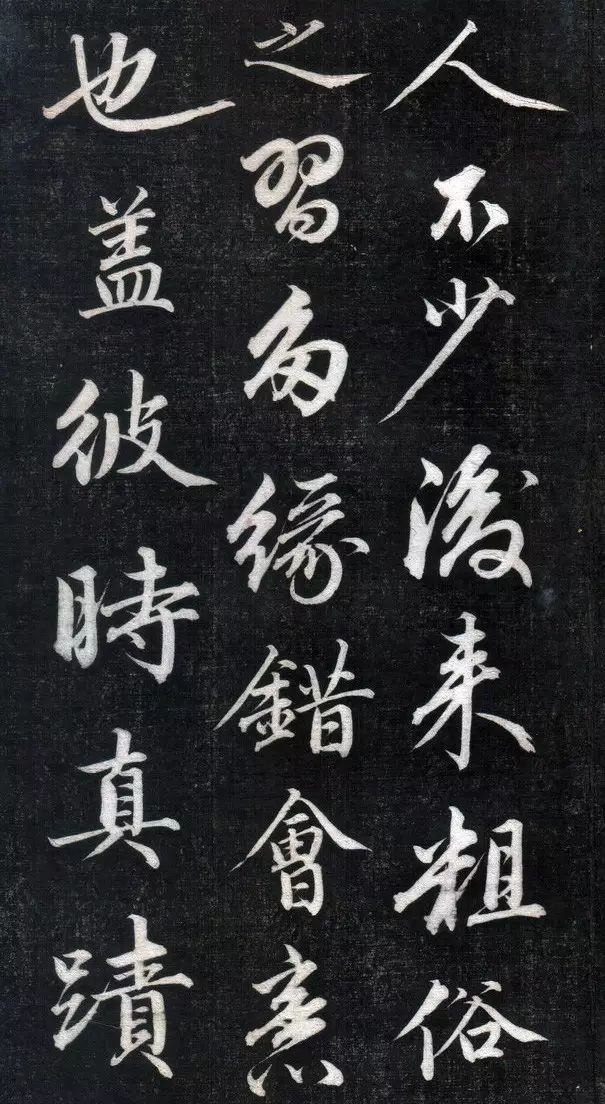 人不少後来粗俗
之習多緣錯會意
也盖彼時真蹟